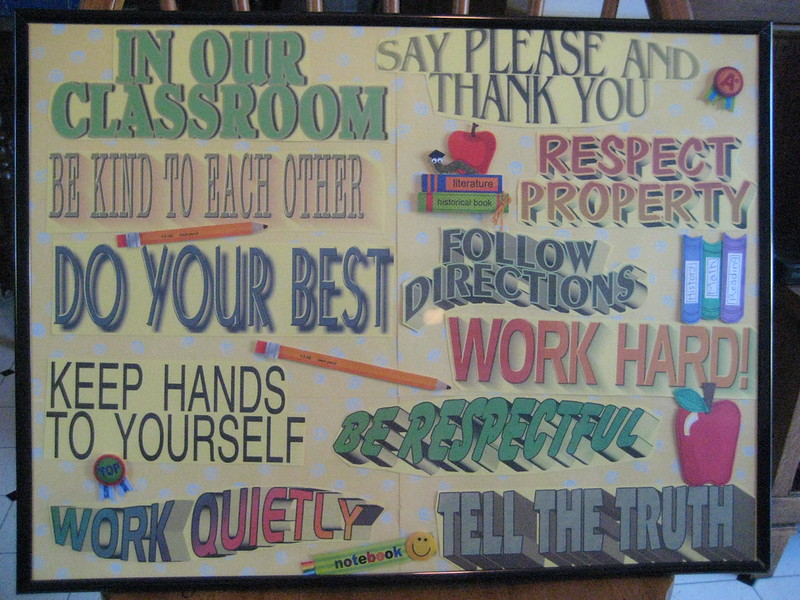 IN OUR
CLASSROOM
BE KIND TO EACH OTHER
DO YOUR BEST
KEEP HANDS
TO YOURSELF
TOP
WORK QUIETLY
SAY PLEASE AND
THANK YOU
A+
literature
historical book
RESPECT
PROPERTY
FOLLOW
DIRECTIONS
History
MATH
Reading
WORK HARD!
BE RESPECTFUL
TELL THE TRUTH
notebook